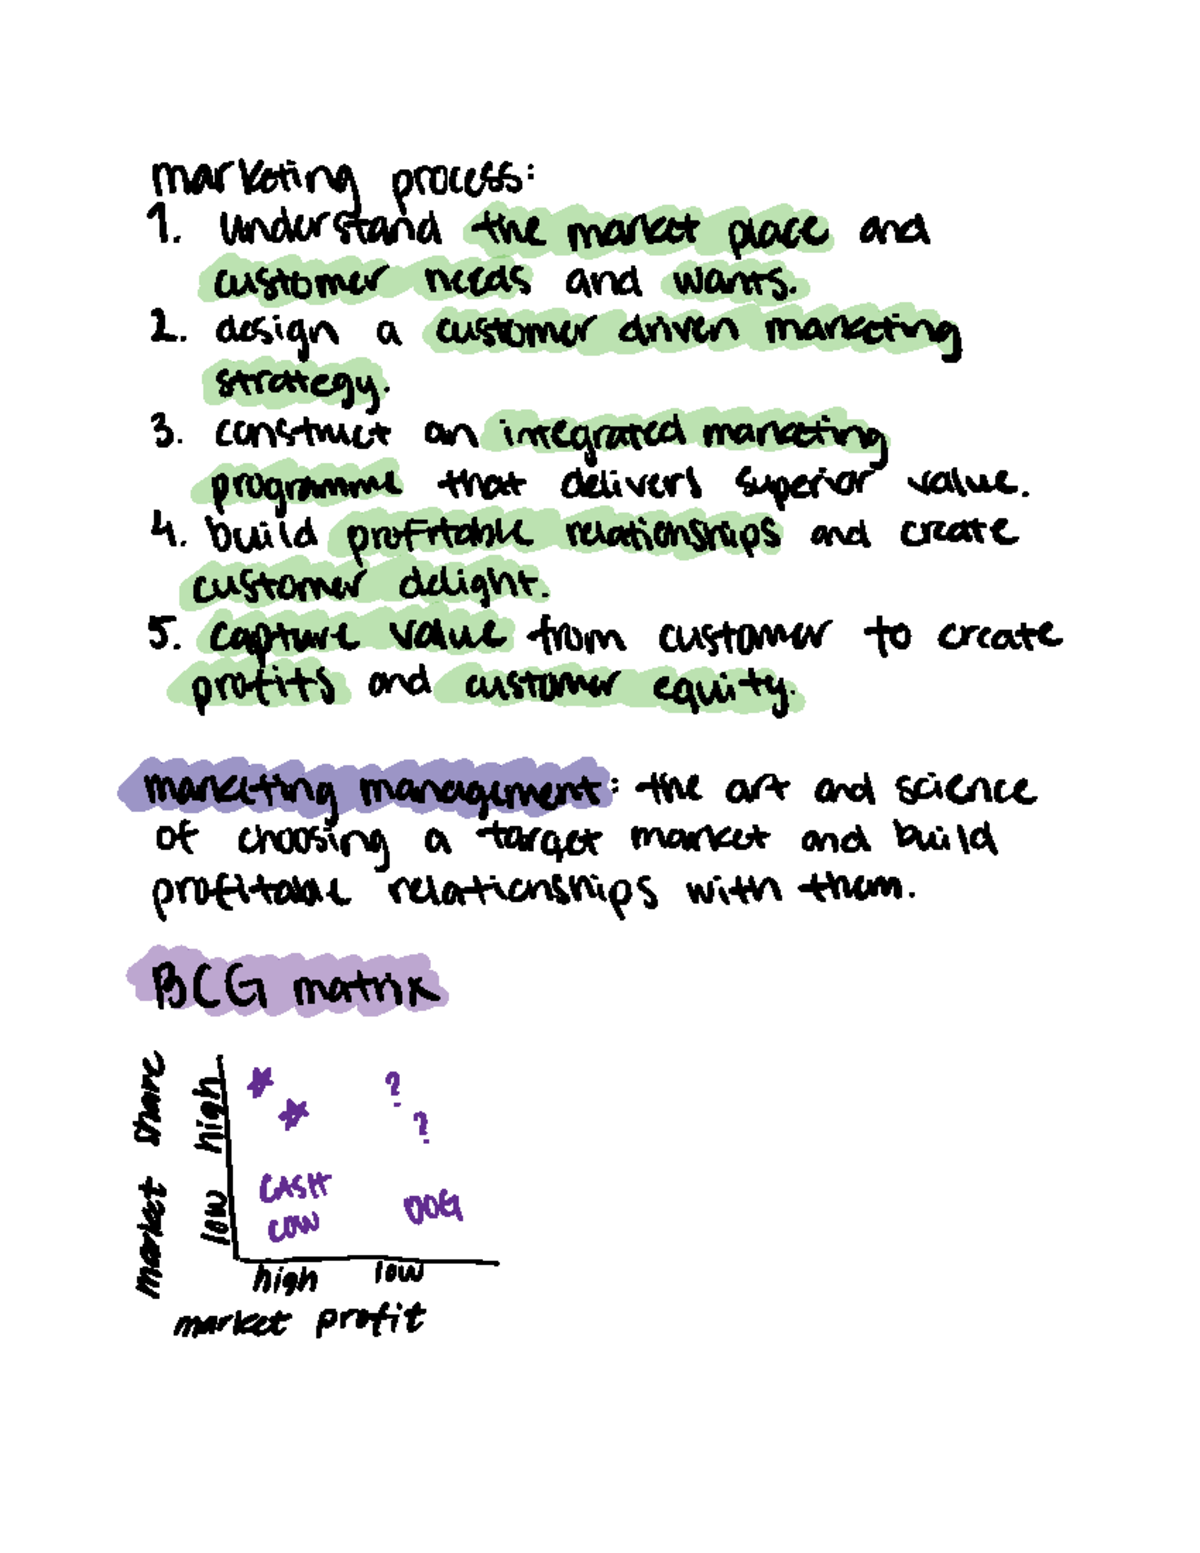 marketing process:
1. understand the market place and
customer needs and wants.
2. design a customer driven marketing
strategy.
3. construct an integrated marketing
programme that delivers superior value.
4. build profitable relationships and create
customer delight.
5. capture value from customer to create
profits and customer equity.
marketing management: the art and science
of choosing a target market and build
profitable relationships with them.
BCG matrix
market share
high
low
? ?
CASH
COW
DOG
high low
market profit